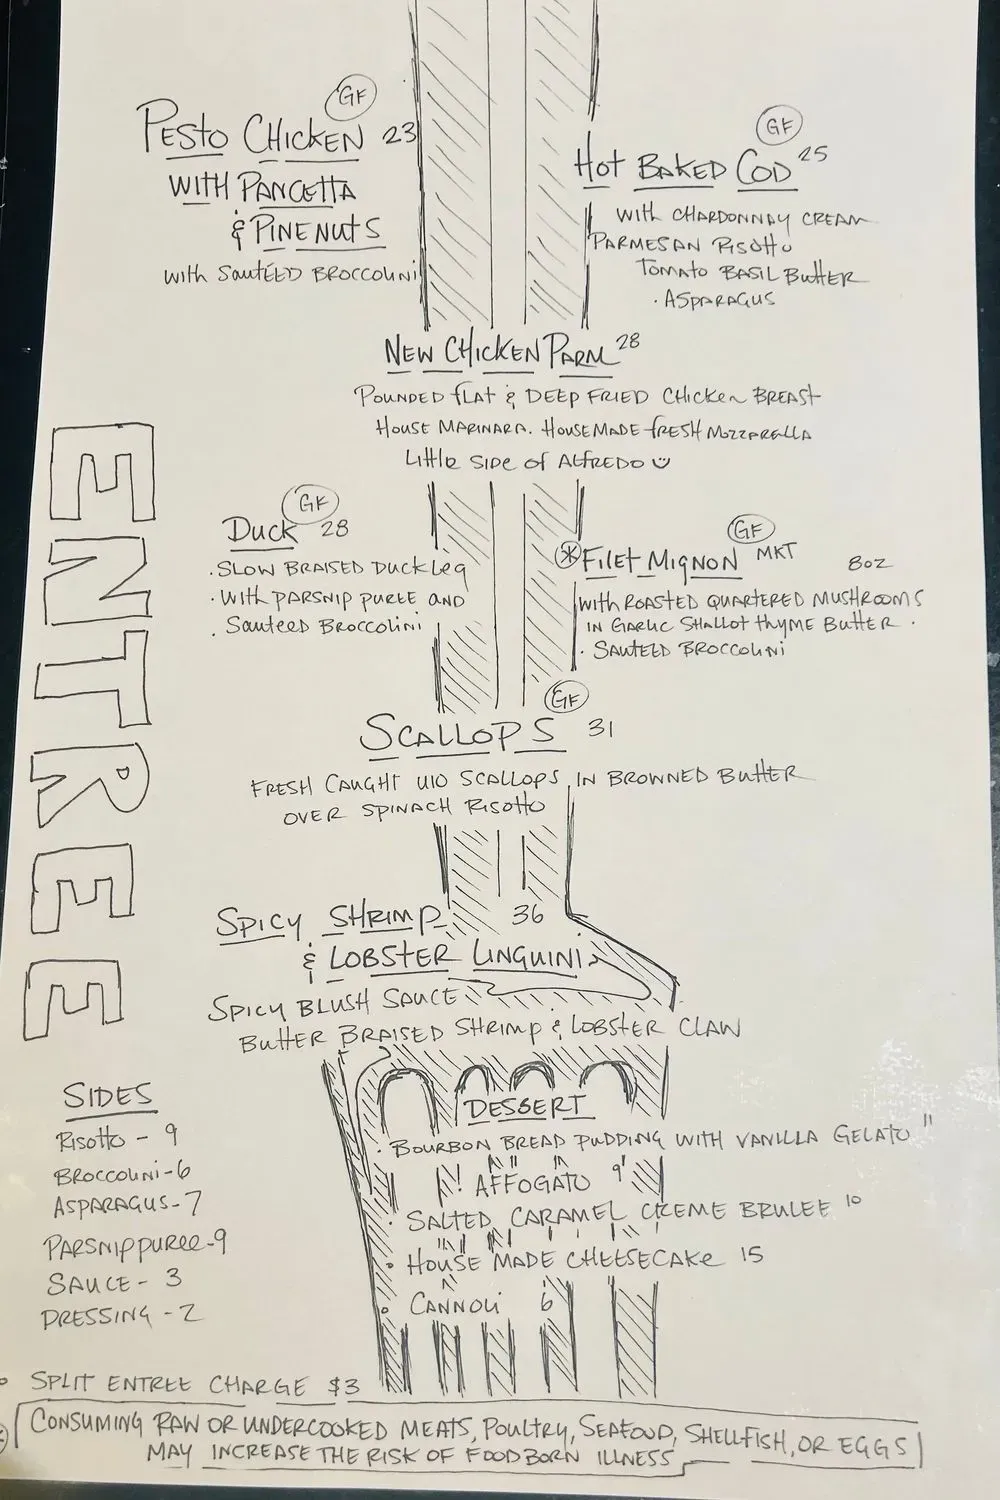 GF
PESTO CHICKEN 23
WITH PANCETTA
& PINENUTS
WITH SAUTÉED BROCCOLINI
GF
HOT BAKED COD 25
WITH CHARDONNAY CREAM
PARMESAN RISOTTO
TOMATO BASIL BUTTER
· ASPARAGUS
NEW CHICKEN PARM 28
POUNDED FLAT & DEEP FRIED CHICKEN BREAST
HOUSE MARINARA. HOUSEMADE FRESH MOZZARELLA
LITTLE SIDE OF ALFREDO
ENTREE
GF
DUCK 28
· SLOW BRAISED DUCK LEG
· WITH PARSNIP PUREE AND
· SAUTEED BROCCOLINI
GF
* FILET MIGNON MKT 8OZ
WITH ROASTED QUARTERED MUSHROOMS
IN GARLIC SHALLOT THYME BUTTER ·
· SAUTEED BROCCOLINI
GF
SCALLOPS 31
FRESH CAUGHT U10 SCALLOPS IN BROWNED BUTTER
OVER SPINACH RISOTTO
SPICY SHRIMP 36
& LOBSTER LINGUINI
SPICY BLUSH SAUCE
BUTTER BRAISED SHRIMP & LOBSTER CLAW
SIDES
RISOTTO - 9
BROCCOLINI - 6
ASPARAGUS - 7
PARSNIP PUREE - 9
SAUCE - 3
DRESSING - 2
DESSERT
· BOURBON BREAD PUDDING WITH VANILLA GELATO 11
AFFOGATO 9
· SALTED CARAMEL CREME BRULEE 10
· HOUSE MADE CHEESECAKE 15
· CANNOLI 6
· SPLIT ENTREE CHARGE $3
* CONSUMING RAW OR UNDERCOOKED MEATS, POULTRY, SEAFOOD, SHELLFISH, OR EGGS
MAY INCREASE THE RISK OF FOOD BORN ILLNESS